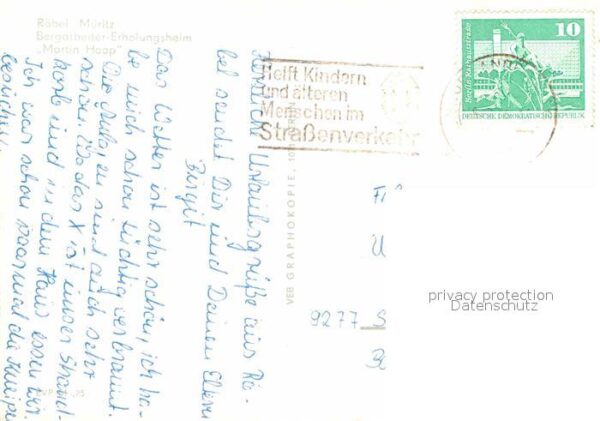 Röbel Müritz
Bergarbeiter-Erholungsheim
„Martin Hoop"
Helft Kindern
und älteren
Menschen im
Straßenverkehr
10
Berlin, Rathausstraße
DEUTSCHE DEMOKRATISCHE REPUBLIK
Urlaubergrüße aus Rö-
bel sendet Dir und Deinen Eltern
Birgit
Das Wetter ist sehr schön, ich ha-
be mich schon tüchtig verbrannt.
Die Anlagen sind auch sehr
schön. Wo das X ist unser Strand-
korb und in dem Haus essen wir.
Ich war schon paarmal die Kneipe
besuchen.
VEB GRAPHOKOPIE,
9277 S
privacy protection
Datenschutz